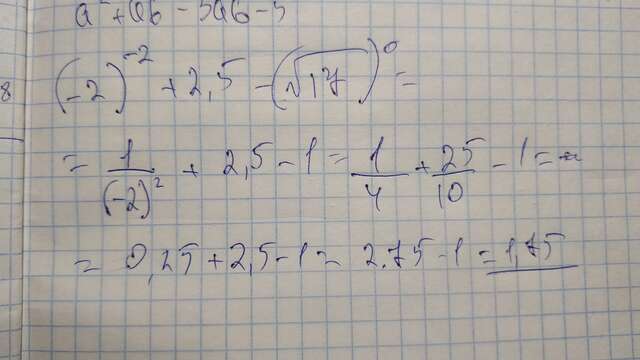 a² + ab - 5ab - 5
8
(-2)⁻² + 2,5 - (√17)⁰ =
= 1/(-2)² + 2,5 - 1 = 1/4 + 25/10 - 1 =
= 0,25 + 2,5 - 1 = 2.75 - 1 = 1,75